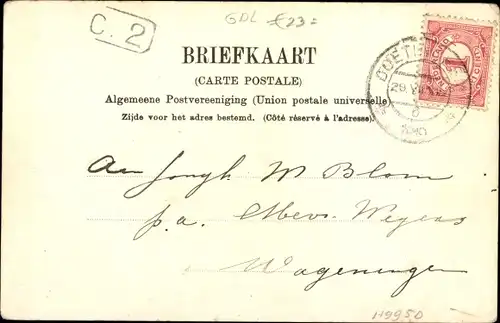 C. 2
GDL £23=
BRIEFKAART
(CARTE POSTALE)
Algemeene Postvereeniging (Union postale universelle)
Zijde voor het adres bestemd. (Côté réservé à l'adresse).
1
Aan Jongh. W Blom
p.a. Mevr.
Wageningen
119950